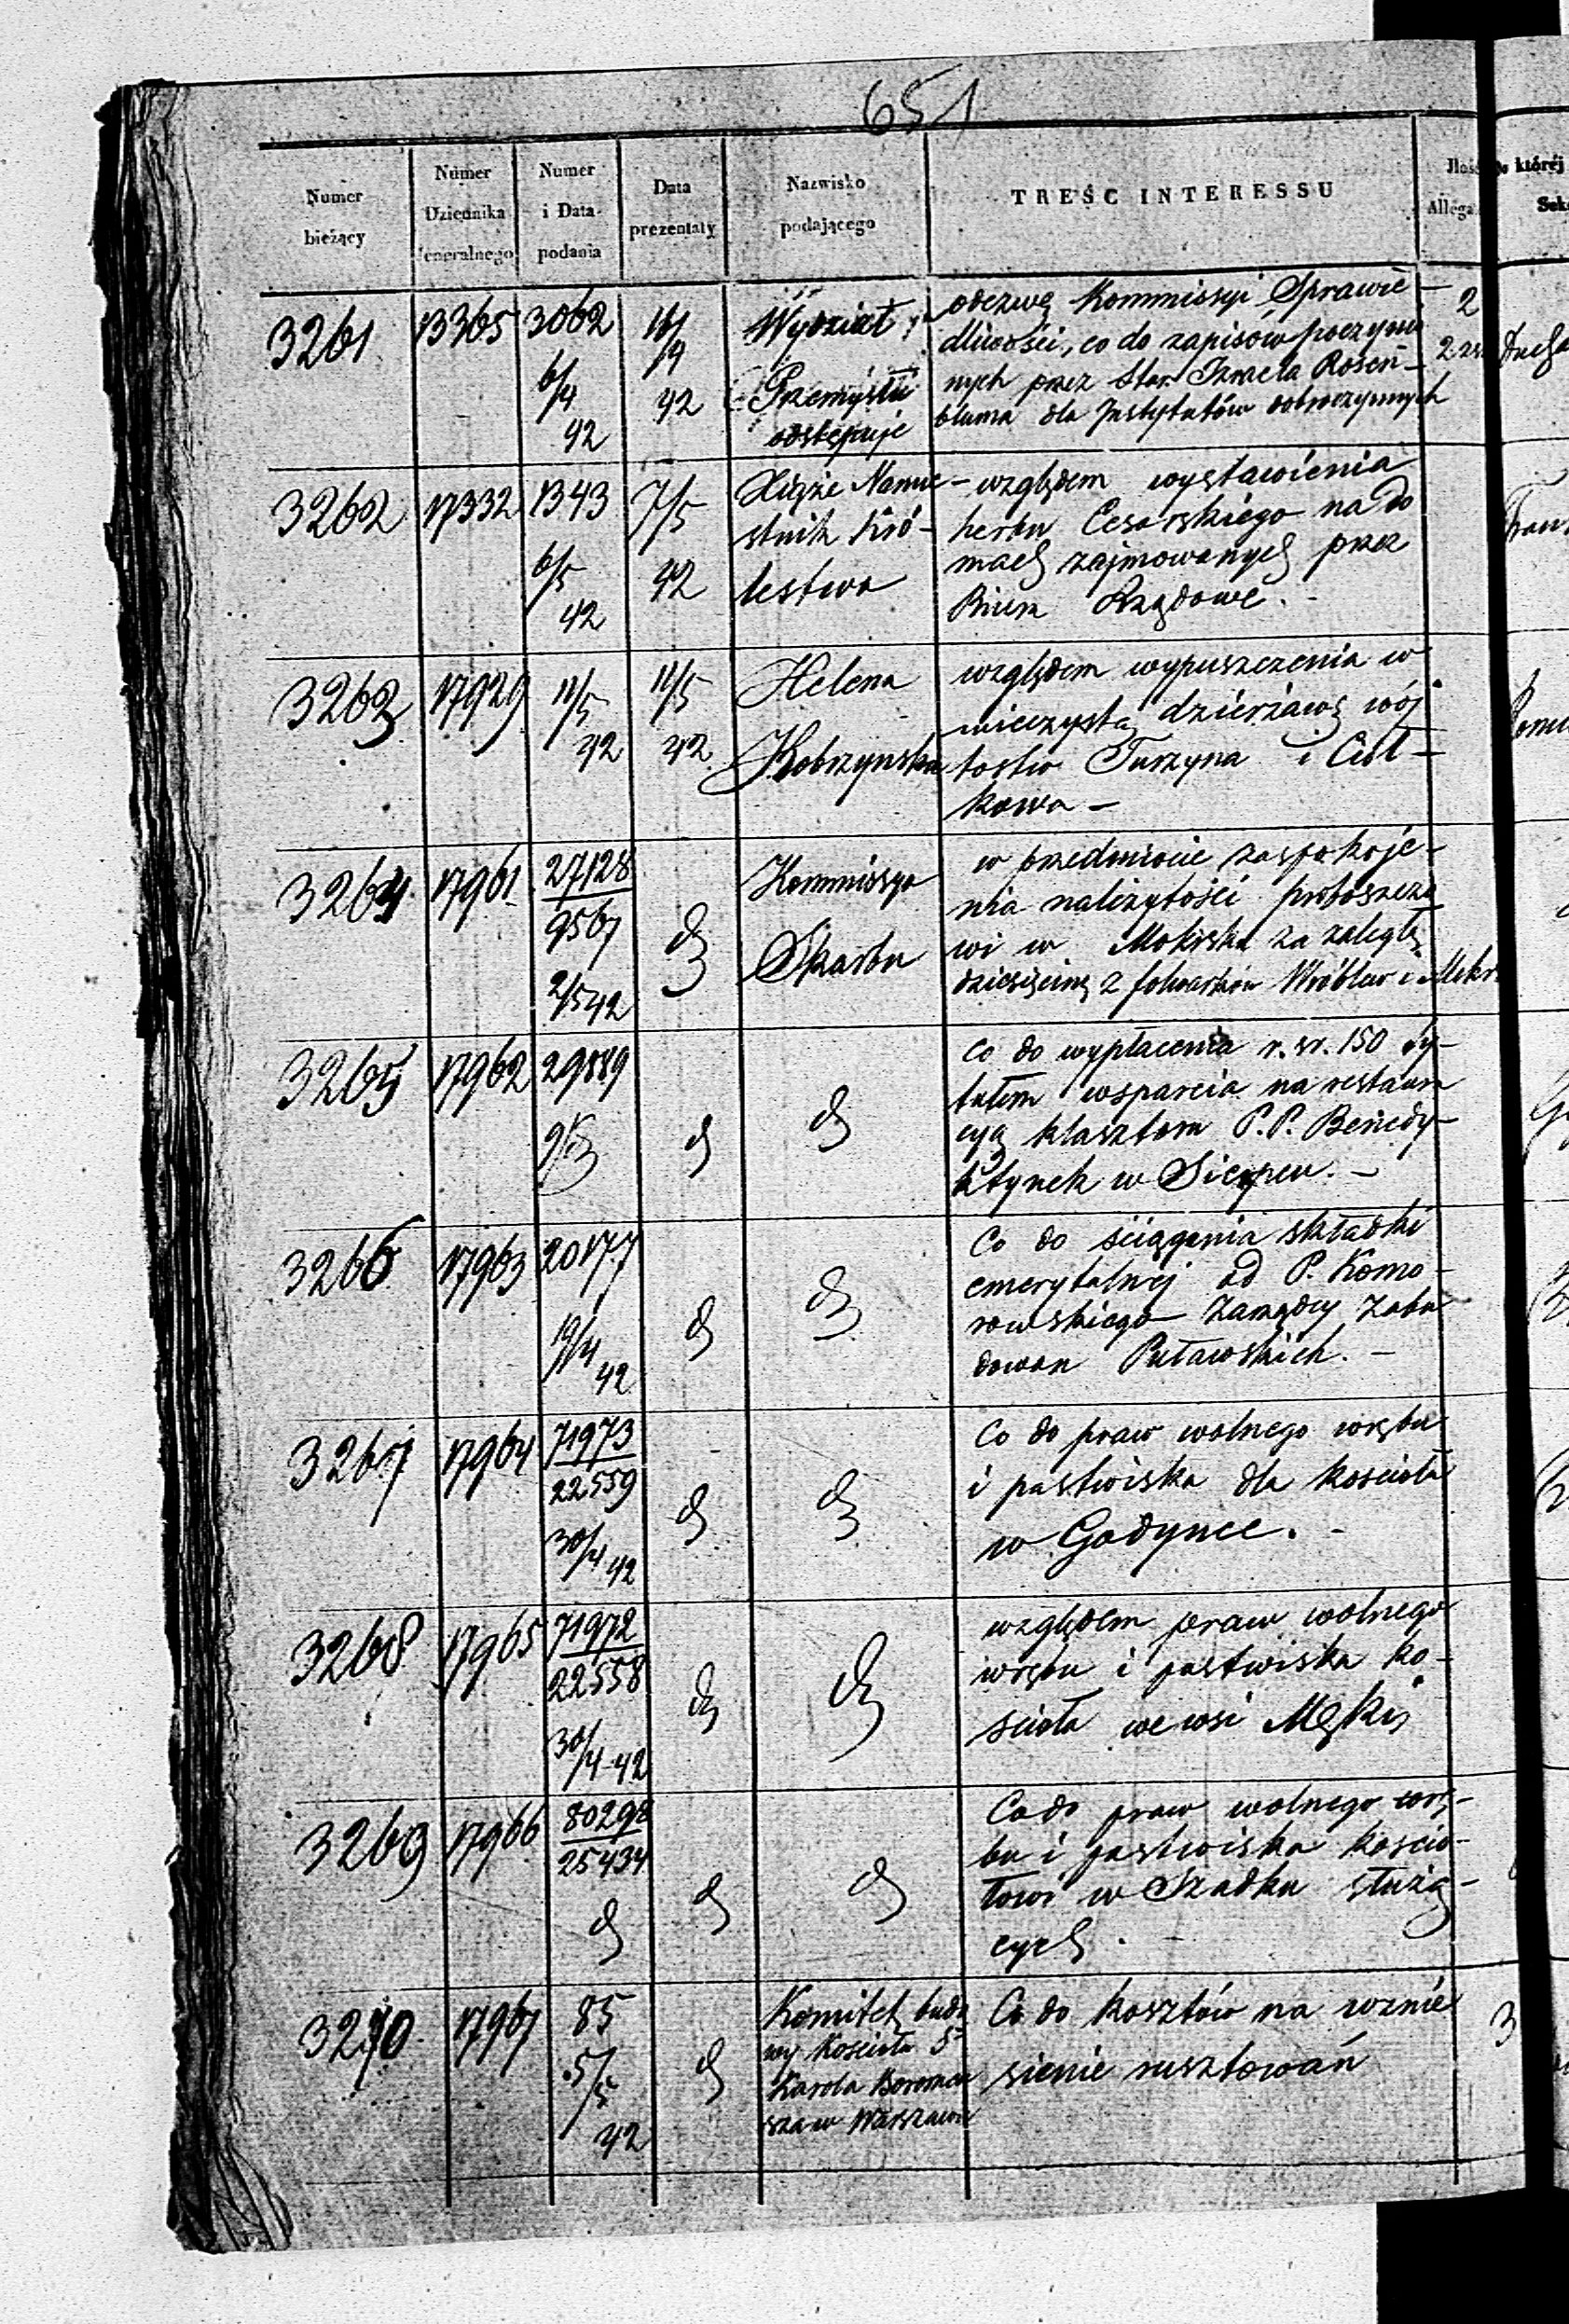 651
Numer
bieżący
Numer
Dziennika
eneralnego
Numer
i Data
podania
Data
prezentaty
Nazwisko
podającego
TREŚĆ INTERESSU
Ilość
Allega
której
3261
13365
3062
6/4
42
42
Wydział
Przemysłu
odstępuje
odezwę Kommissyi Sprawie-
dliwości, co do zapisów poczynio
nych przez Star. Izraela Rosen-
bluma dla Instytutów dobroczynnych
2
3262
17332
1343
6/5
42
7/5
42
Xiąże Namie-
stnik Kró-
lestwa
względem wystawienia
herbu Cesarskiego na do
mach zajmowanych przez
Biura Rządowe.
3263
17929
11/5
42
11/5
42
Helena
Kobrzynska
względem wypuszczenia w
wieczystą dzierżawę wój
tostw Turzyna i
kowa -
3264
17961
27128
9567
2/5 42
d
Kommissya
Skarbu
w przedmiocie zaspokoje-
nia należytości proboszczo
wi w Mokrsku za zaległą
dziesięcinę z folwarków Wróblew i Mokr
3265
17962
29889
d
d
Co do wypłacenia r. sr. 150 ty-
tułem wsparcia na restaura
cyą klasztoru P. P. Benedy-
ktynek w Sierpcu. -
3266
17963
20177
19/4
42
d
d
Co do ściągania składki
emerytalnej od P. Komo-
rowskiego Zarządcy Zabu
dowan Puławskich. -
3267
17964
71973
22559
30/4 42
d
d
Co do praw wolnego wrębu
i pastwiska dla kościoła
w Godynce.
3268
17965
71972
22558
30/4 42
d
d
względem praw wolnego
wrębu i pastwiska ko-
ścioła we wsi Męki
3269
17966
80298
25434
d
d
d
Co do praw wolnego wrę-
bu i pastwiska kościo-
łowi w Szadku służą-
cych.
3270
17967
85
5/5
42
d
Komitet budo
wy Kościoła Sº
Karola Boromeu
sza w Warszawie
Co do kosztów na wznie
sienie rusztowań
3